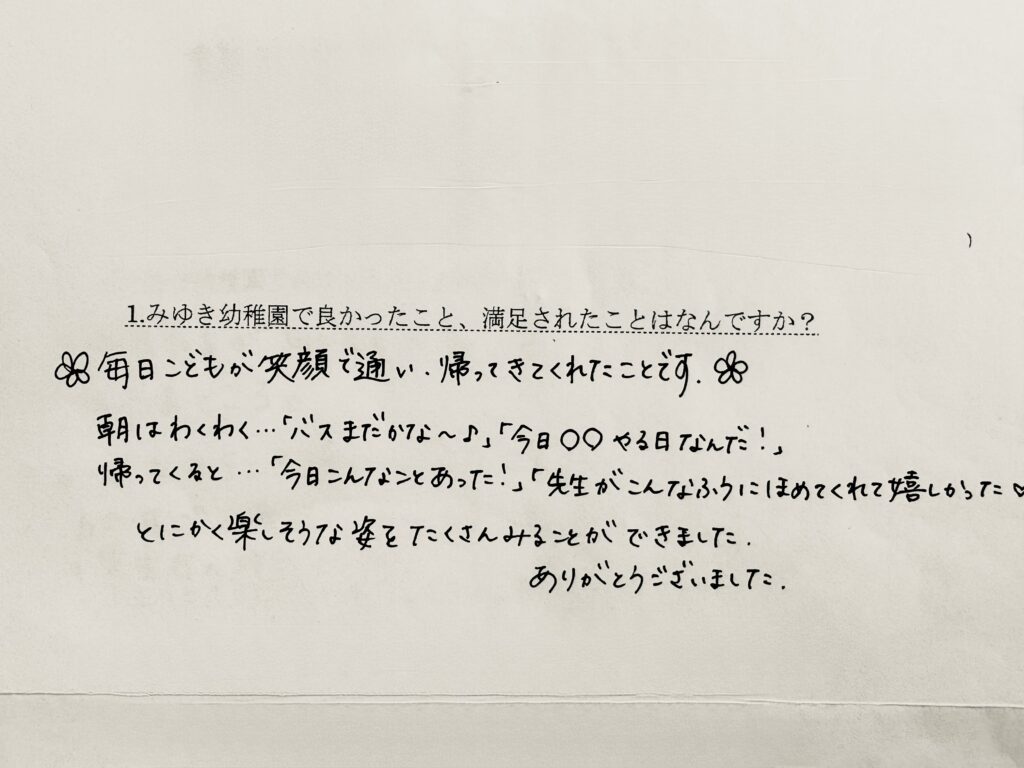 1.みゆき幼稚園で良かったこと、満足されたことはなんですか？
毎日こどもが笑顔で通い.帰ってきてくれたことです.
朝はわくわく…「バスまだかな〜♪」「今日〇〇やる日なんだ!」
帰ってくると…「今日こんなことあった!」「先生がこんなふうにほめてくれて嬉しかった♡
とにかく楽しそうな姿をたくさんみることができました.
ありがとうございました.